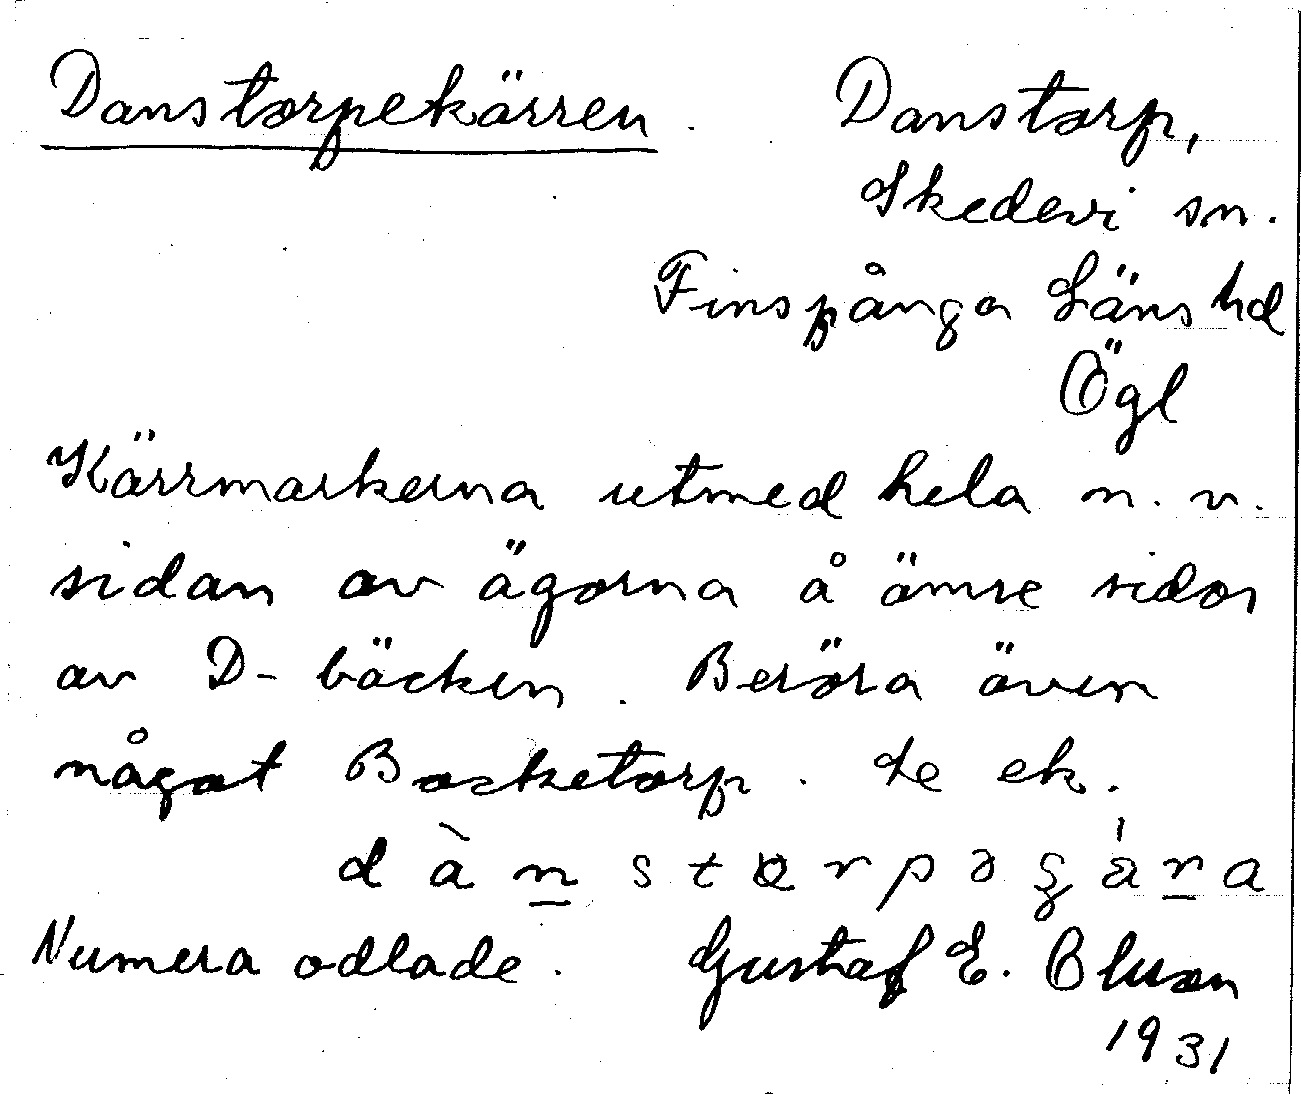 Danstorpekärren. Danstorp,
Skedevi sn.
Finspånga Läns hd
Ögl
Kärrmarkerna utmed hela n.v.
sidan av ägorna å ömse sidor
av D-bäcken. Beröra även
något Bocketorp. Se ek.
Numera odlade. Gustaf E. Olson
1931